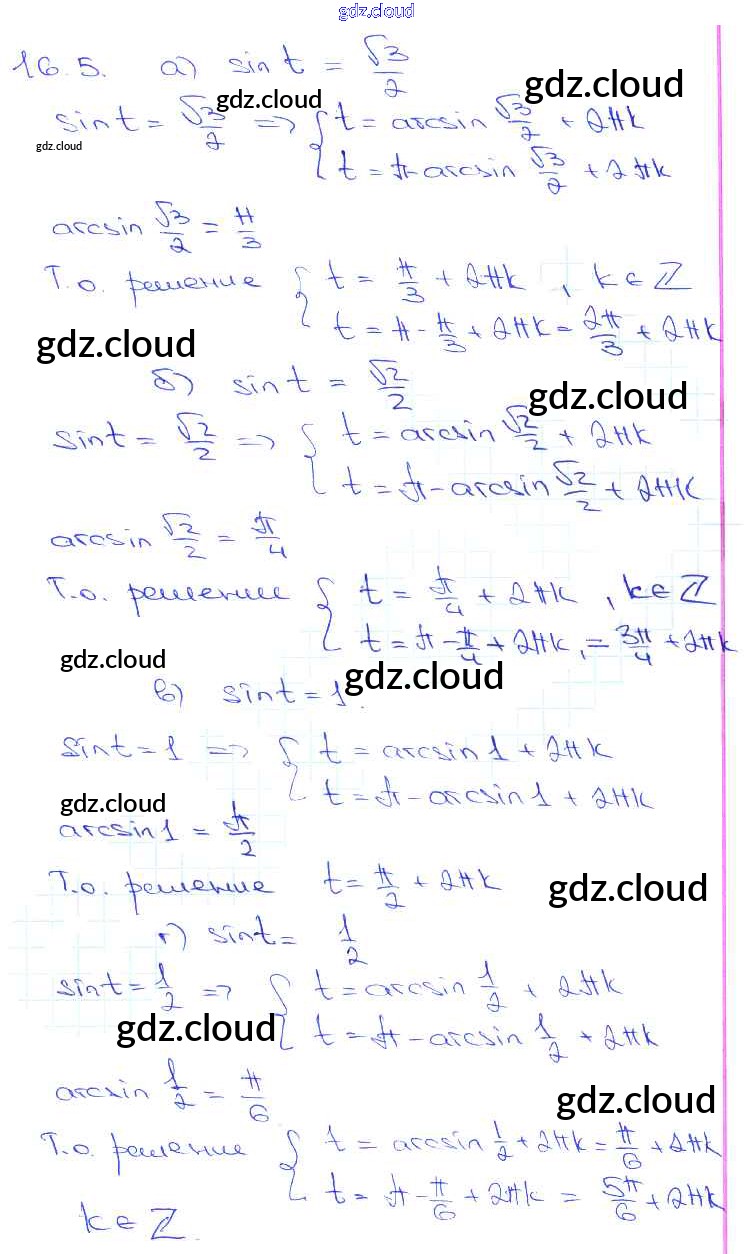 gdz.cloud
16.5. а) sin t = √3/2
gdz.cloud
sin t = √3/2 => { t = arcsin √3/2 + 2πk
gdz.cloud
gdz.cloud
t = π - arcsin √3/2 + 2πk
arcsin √3/2 = π/3
Т.о. решение { t = π/3 + 2πk , k ∈ ℤ
t = π - π/3 + 2πk = 2π/3 + 2πk
gdz.cloud
б) sin t = √2/2
gdz.cloud
sin t = √2/2 => { t = arcsin √2/2 + 2πk
t = π - arcsin √2/2 + 2πk
arcsin √2/2 = π/4
Т.о. решение { t = π/4 + 2πk , k ∈ ℤ
t = π - π/4 + 2πk , = 3π/4 + 2πk
gdz.cloud
в) sin t = 1.
gdz.cloud
sin t = 1 => { t = arcsin 1 + 2πk
t = π - arcsin 1 + 2πk
gdz.cloud
arcsin 1 = π/2
Т.о. решение t = π/2 + 2πk
gdz.cloud
г) sin t = 1/2
sin t = 1/2 => { t = arcsin 1/2 + 2πk
t = π - arcsin 1/2 + 2πk
gdz.cloud
arcsin 1/2 = π/6
gdz.cloud
Т.о. решение { t = arcsin 1/2 + 2πk = π/6 + 2πk
t = π - π/6 + 2πk = 5π/6 + 2πk
k ∈ ℤ.